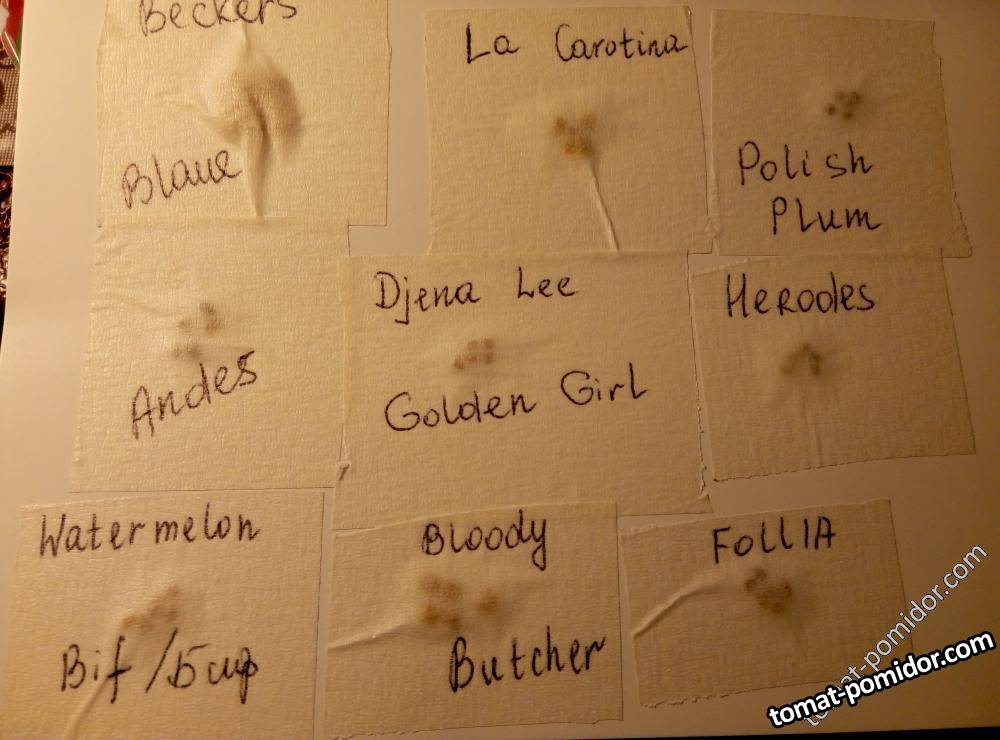 Beckers
Blaue
La Carotina
Polish
Plum
Andes
Djena Lee
Golden Girl
Herodes
Watermelon
Bif /
Bloody
Butcher
FOLLIA
tomat-pomidor.com
tomat-pomidor.com